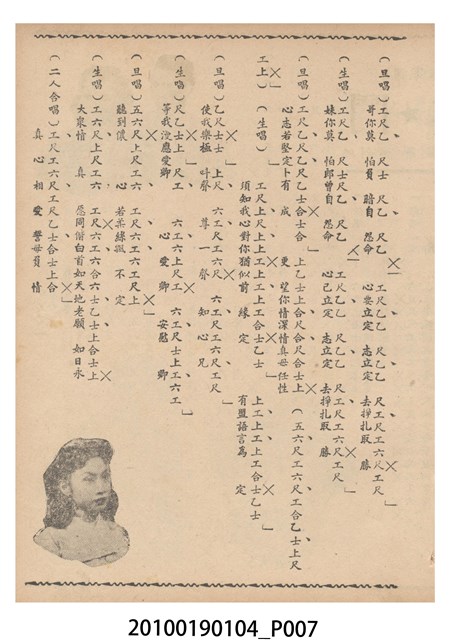 (旦唱)工尺乙 尺士 尺乙 尺乙 工尺乙乙 尺乙乙 尺工尺工六尺工尺
哥你莫 怕負 賠自 怨命 心要立定 志立定 去掙扎取 勝
(生唱)工尺乙 尺士尺乙 尺乙 工尺乙乙 尺乙乙 尺工尺工六尺工尺
妹你莫 怕郎曾自 怨命 心已立定 志立定 去掙扎取 勝
(旦唱)工尺乙尺乙尺乙士合士合 上乙士上合尺合尺合士上 (五六尺工六尺工合乙士上尺
心志若堅定卜有 成 更 望你情深情真毋任性
工上) (生唱) 工尺上尺上尺上工上上工合士乙士 上工上工上工合士乙士
須知我心對你猶似前 緣 定 有盟語言為 定
(旦唱)尺乙尺士士 上尺 六工尺工六尺 六工尺工六尺工尺
使我樂極 吽聲 尊 一 聲 知 心 兄
(生唱)尺乙士上 尺工 六工六上尺工 六工尺士上工六工
等我從應愛卿 心 愛 卿 安慰 卿
(旦唱)五六尺上尺工六 工尺六工六工尺上
聽到儂 心 若柔綠撇 不 定
(生唱)工六尺上尺工六 工尺六工六合六士乙士上合士上
大衆情 真 愿同偕白首如天地老願 如日永
(二人合唱)工尺工六尺工尺乙士合士上合
真 心 相 愛 誓毋負 情
20100190104_P007